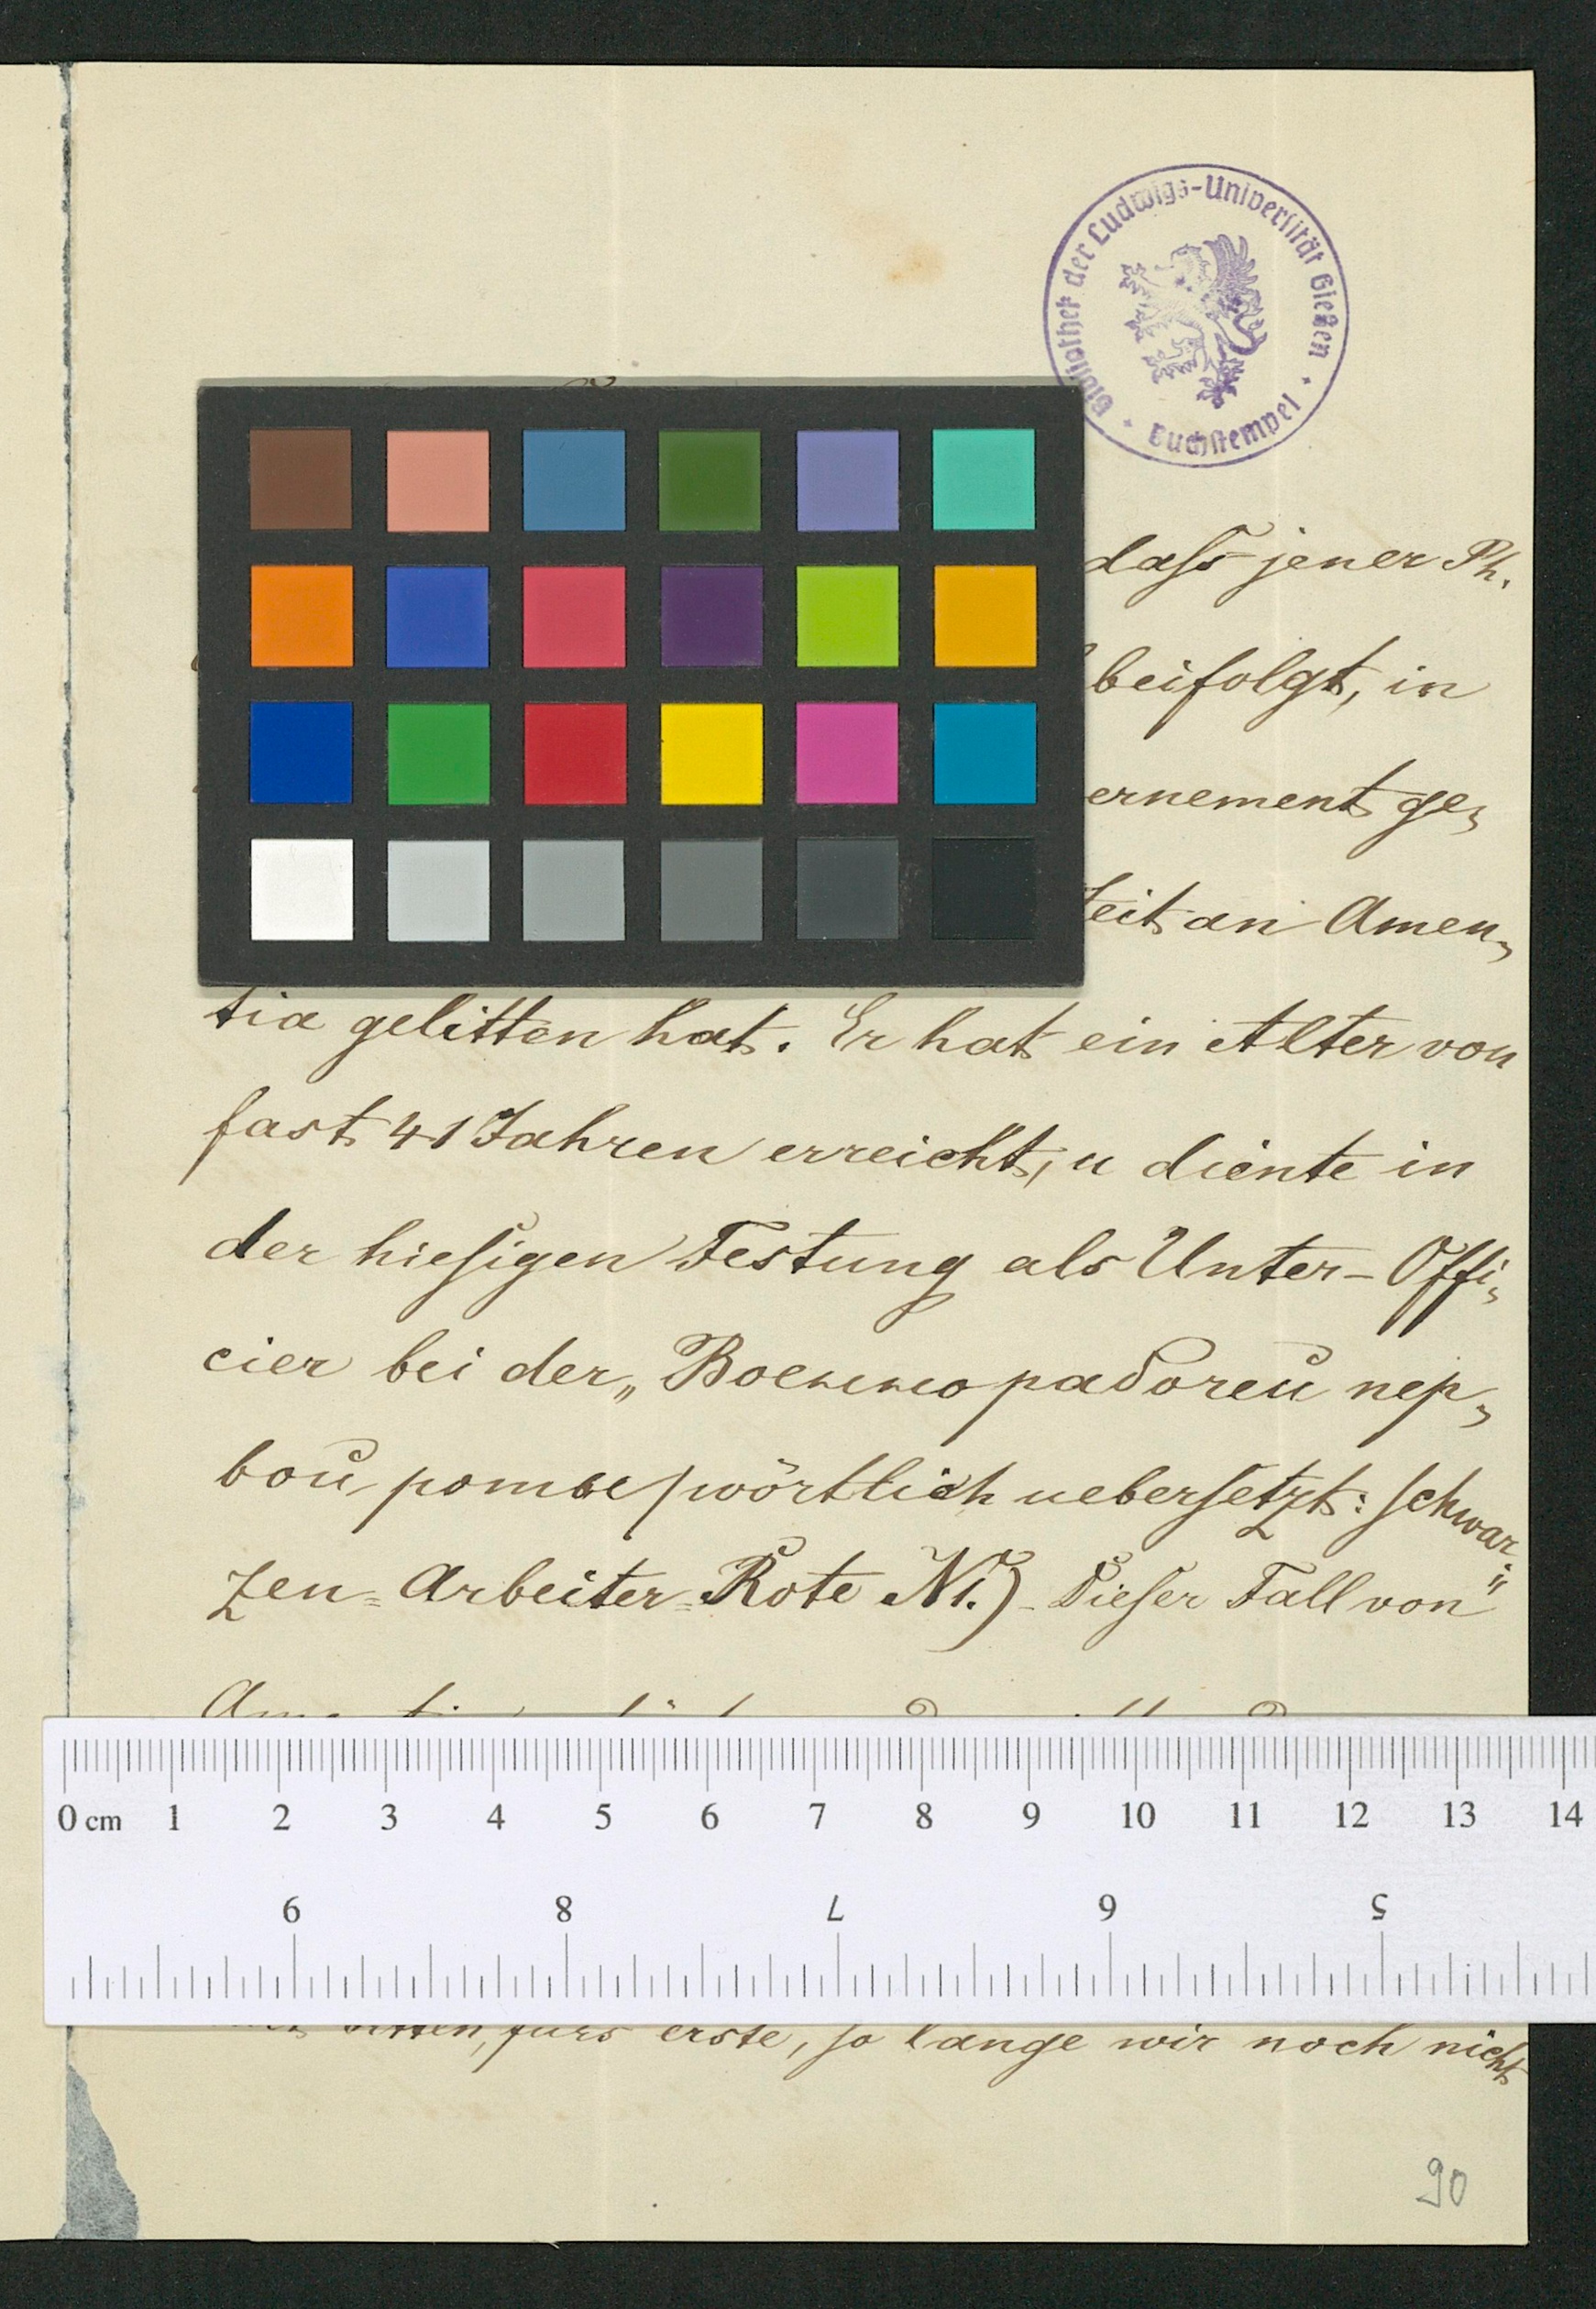 Bibliothek der Ludwigs-Universität Gießen · Buchstempel ·
dass jener Ph.
beifolgt, in
ernement ge-
Zeit an Amen-
tia gelitten hat. Er hat ein Alter von
fast 41 Jahren erreicht, u diente in
der hiesigen Festung als Unter-Offi-
cier bei der „
wörtlich uebersetzt: schwar-
zen-Arbeiter-Rote N1.) Dieser Fall von
0 cm 1 2 3 4 5 6 7 8 9 10 11 12 13 14
9 8 7 6 5
bitten, fürs erste, so lange wir noch nicht
90